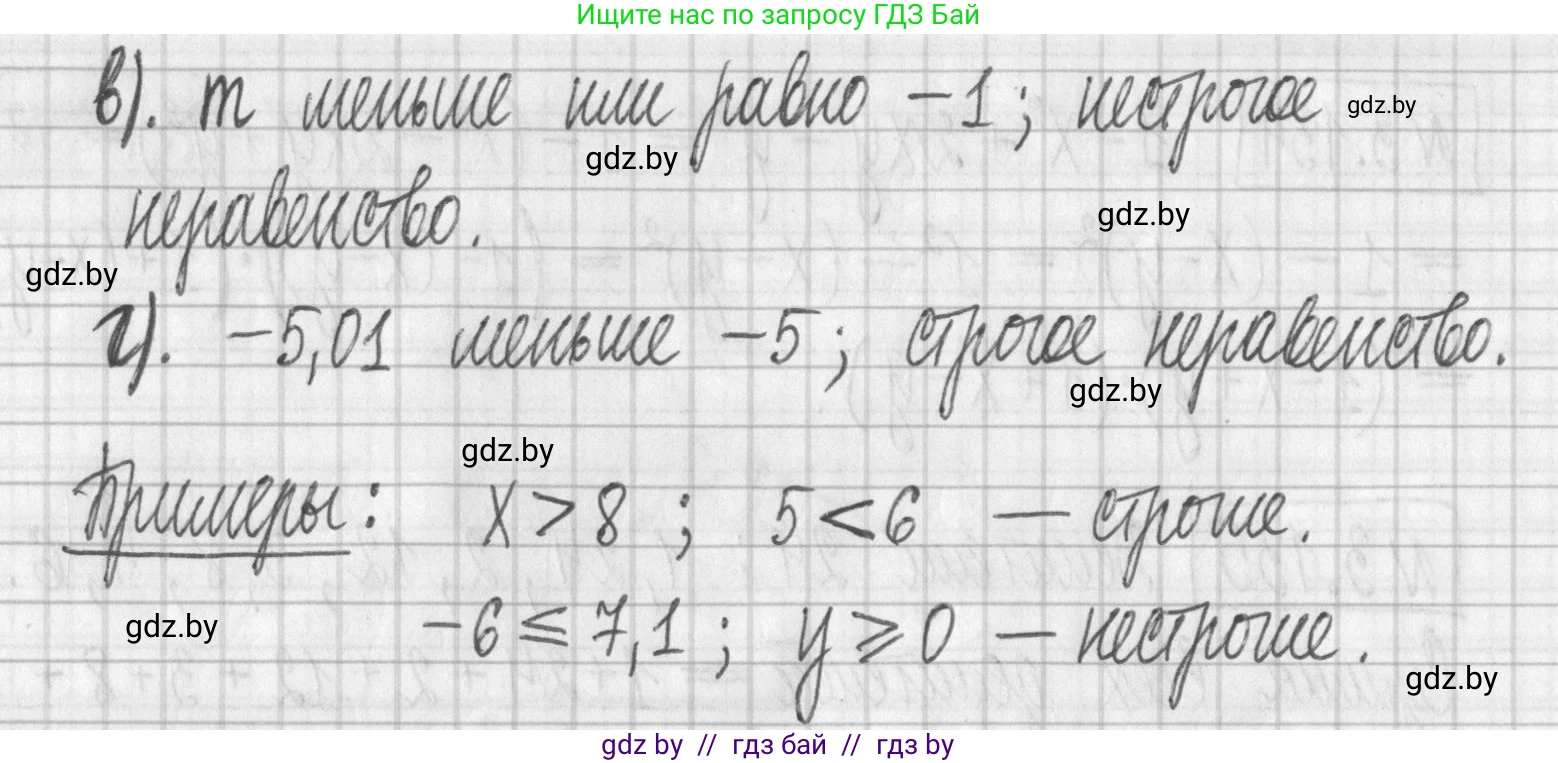 Ищите нас по запросу ГДЗ Бай
в). m меньше или равно −1; нестрогое gdz.by
gdz.by
неравенство. gdz.by
gdz.by
г). −5,01 меньше −5; строгое неравенство.
gdz.by
gdz.by
Примеры: x > 8; 5 < 6 — строгие.
gdz.by −6 ≤ 7,1; y ⩾ 0 — нестрогие.
gdz.by
gdz by // гдз бай // гдз by